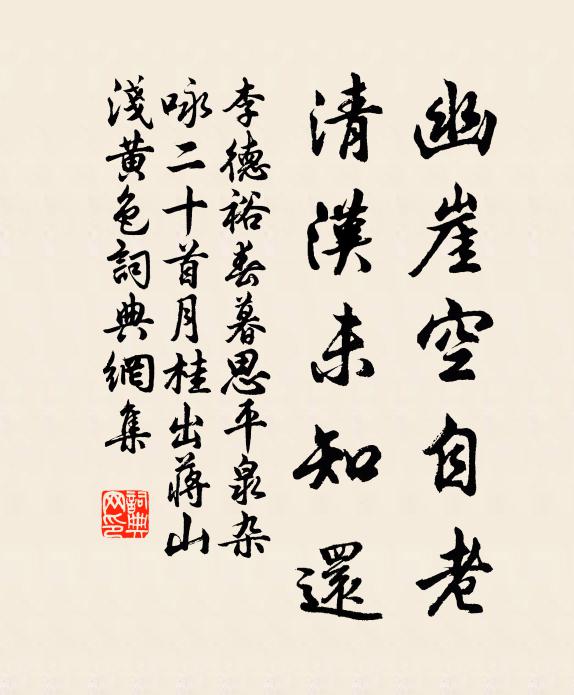 幽崖空自老
清漢未知還
李德裕春暮思平泉杂
咏二十首月桂出蒋山
淺黄色詞典網集
詞典
网印